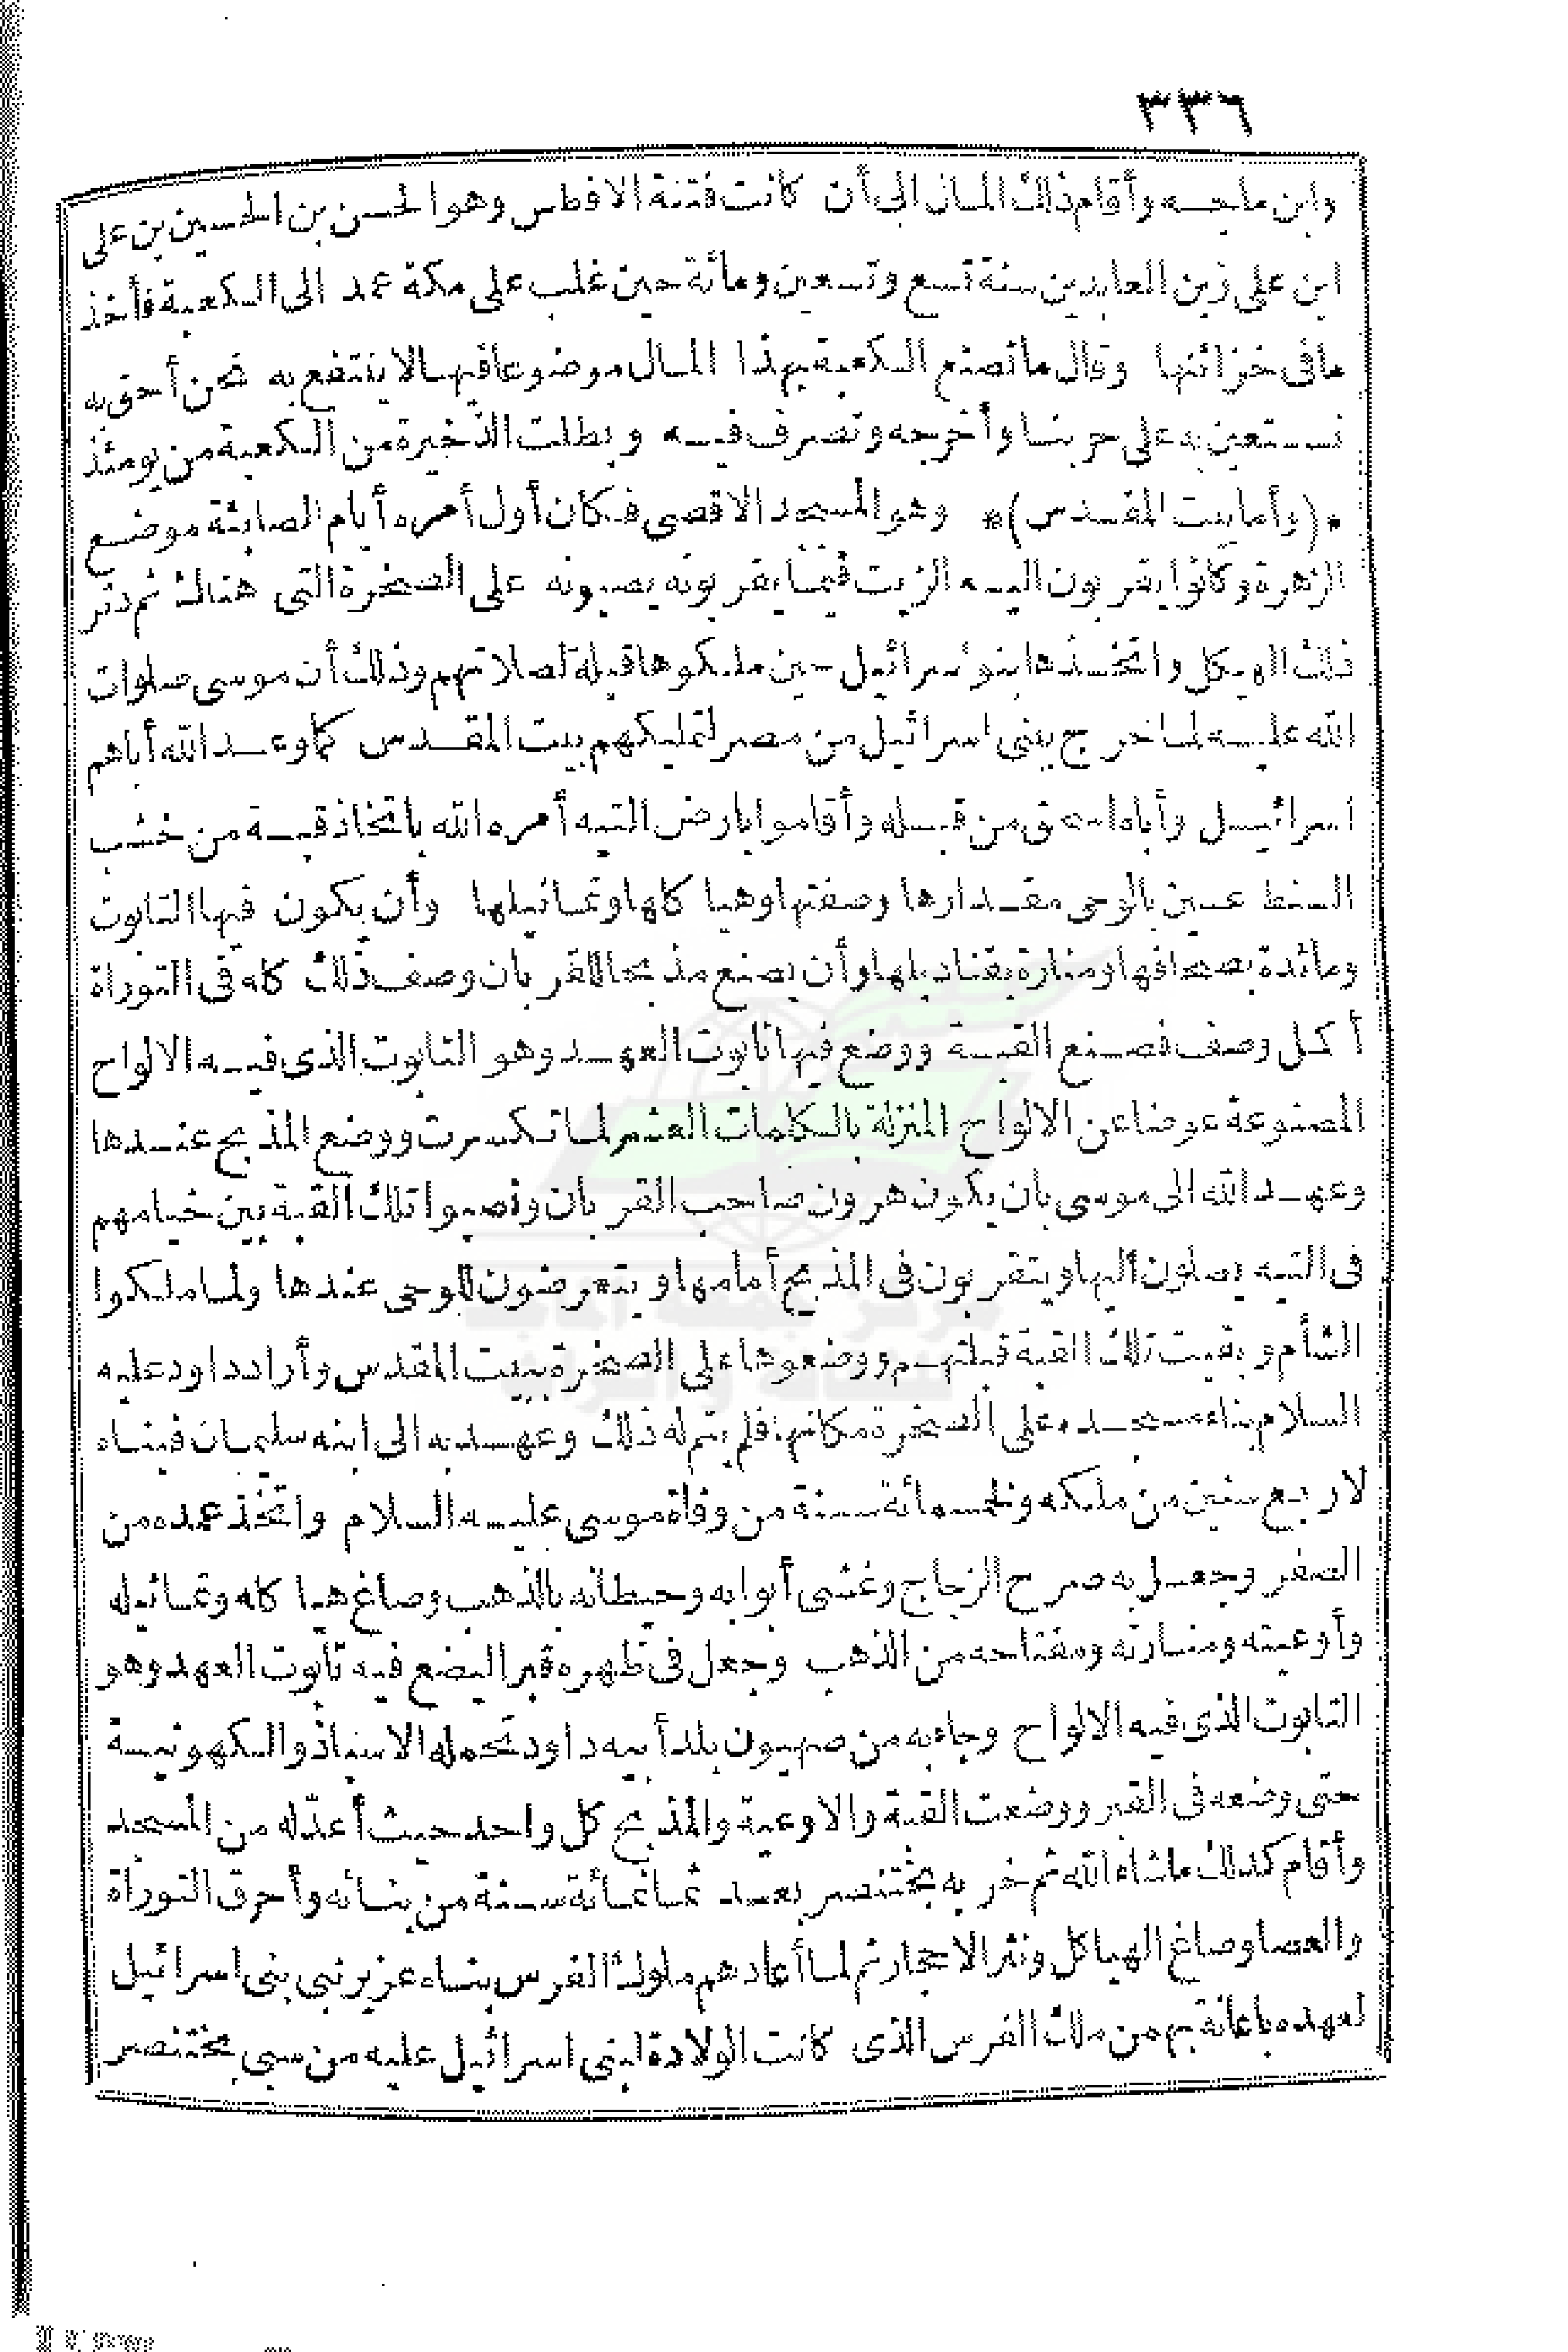 ٣٣٦
وابن ماجه وأقام ذلك المال الى أن كانت فتنة الافطس وهو الحسن بن الحسين بن على
ابن على زين العابدين سنة تسع وتسعين ومائة حين غلب على مكة عمد الى الكعبة فأخذ
مافى خزائنها وقال ماتصنع الكعبة بهذا المال موضوعا فيها لا ينتفع به نحن أحق به
نستعين به على حربنا وأخرجه وتصرف فيه وبطلت الذخيرة من الكعبة من يومئذ
*(وأما بيت المقدس)* وهو المسجد الاقصى فكان أول أمره أيام الصابئة موضع
الزهرة وكانوا يقربون اليه الزيت فيما يقربونه يصبونه على الصخرة التى هناك ثم دثر
ذلك الهيكل واتخذها بنو اسرائيل حين ملكوها قبلة لصلاتهم وذلك أن موسى صلوات
الله عليه لما خرج ببنى اسرائيل من مصر لتمليكهم بيت المقدس كما وعد الله أباهم
اسرائيل وأباه اسحق من قبله وأقاموا بارض التيه أمره الله باتخاذ قبة من خشب
السنط عين بالوحى مقدارها وصفتها وهيا كلها وتماثيلها وأن يكون فيها التابوت
ومائدة بصحافها ومنارة بقناديلها وأن يصنع مذبحا للقربان وصف ذلك كله فى التوراة
أكمل وصف فصنع القبة ووضع فيها تابوت العهد وهو التابوت الذى فيه الالواح
المصنوعة عوضا عن الالواح المنزلة بالكلمات العشر لما تكسرت ووضع المذبح عندها
وعهد الله الى موسى بان يكون هرون صاحب القربان ونصبوا تلك القبة بين خيامهم
فى التيه يصلون اليها ويتقربون فى المذبح أمامها ويتعرضون للوحى عندها ولما ملكوا
الشأم وبقيت تلك القبة قبلتهم ووضعوها على الصخرة ببيت المقدس وأراد داود عليه
السلام بناء مسجده على الصخرة مكانها فلم يتم له ذلك وعهد به الى ابنه سليمان فبناه
لاربع سنين من ملكه ولخمسمائة سنة من وفاة موسى عليه السلام واتخذ عمده من
الصفر وجعل به صرح الزجاج وغشى أبوابه وحيطانه بالذهب وصاغ هيا كله وتماثيله
وأوعيته ومنارته ومفتاحه من الذهب وجعل فى ظهره قبرا ليضع فيه تابوت العهد وهو
التابوت الذى فيه الالواح وجاء به من صهيون بلد أبيه داود تحمله الاسباط والكهونية
حتى وضعه فى القبر ووضعت القبة والاوعية والمذبح كل واحد حيث أعدّ له من المسجد
وأقام كذلك ماشاء الله ثم خربه بختنصر بعد ثمانمائة سنة من بنائه وأحرق التوراة
والعصا وصاغ الهياكل ونثر الاحجار ثم لما أعادهم ملوك الفرس بناه عزير نبى بنى اسرائيل
لعهده باعانة بهمن ملك الفرس الذى كانت الولادة لبنى اسرائيل عليه من سبى بختنصر